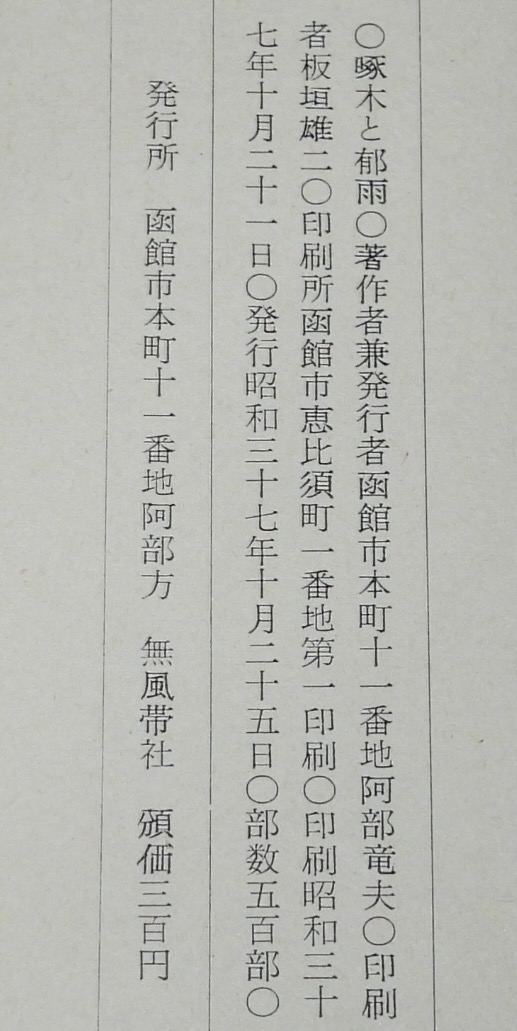 〇啄木と郁雨〇著作者兼発行者函館市本町十一番地阿部竜夫〇印刷
者板垣雄二〇印刷所函館市恵比須町一番地第一印刷〇印刷昭和三十
七年十月二十一日〇発行昭和三十七年十月二十五日〇部数五百部〇
発行所　函館市本町十一番地阿部方　無風帯社　頒価三百円